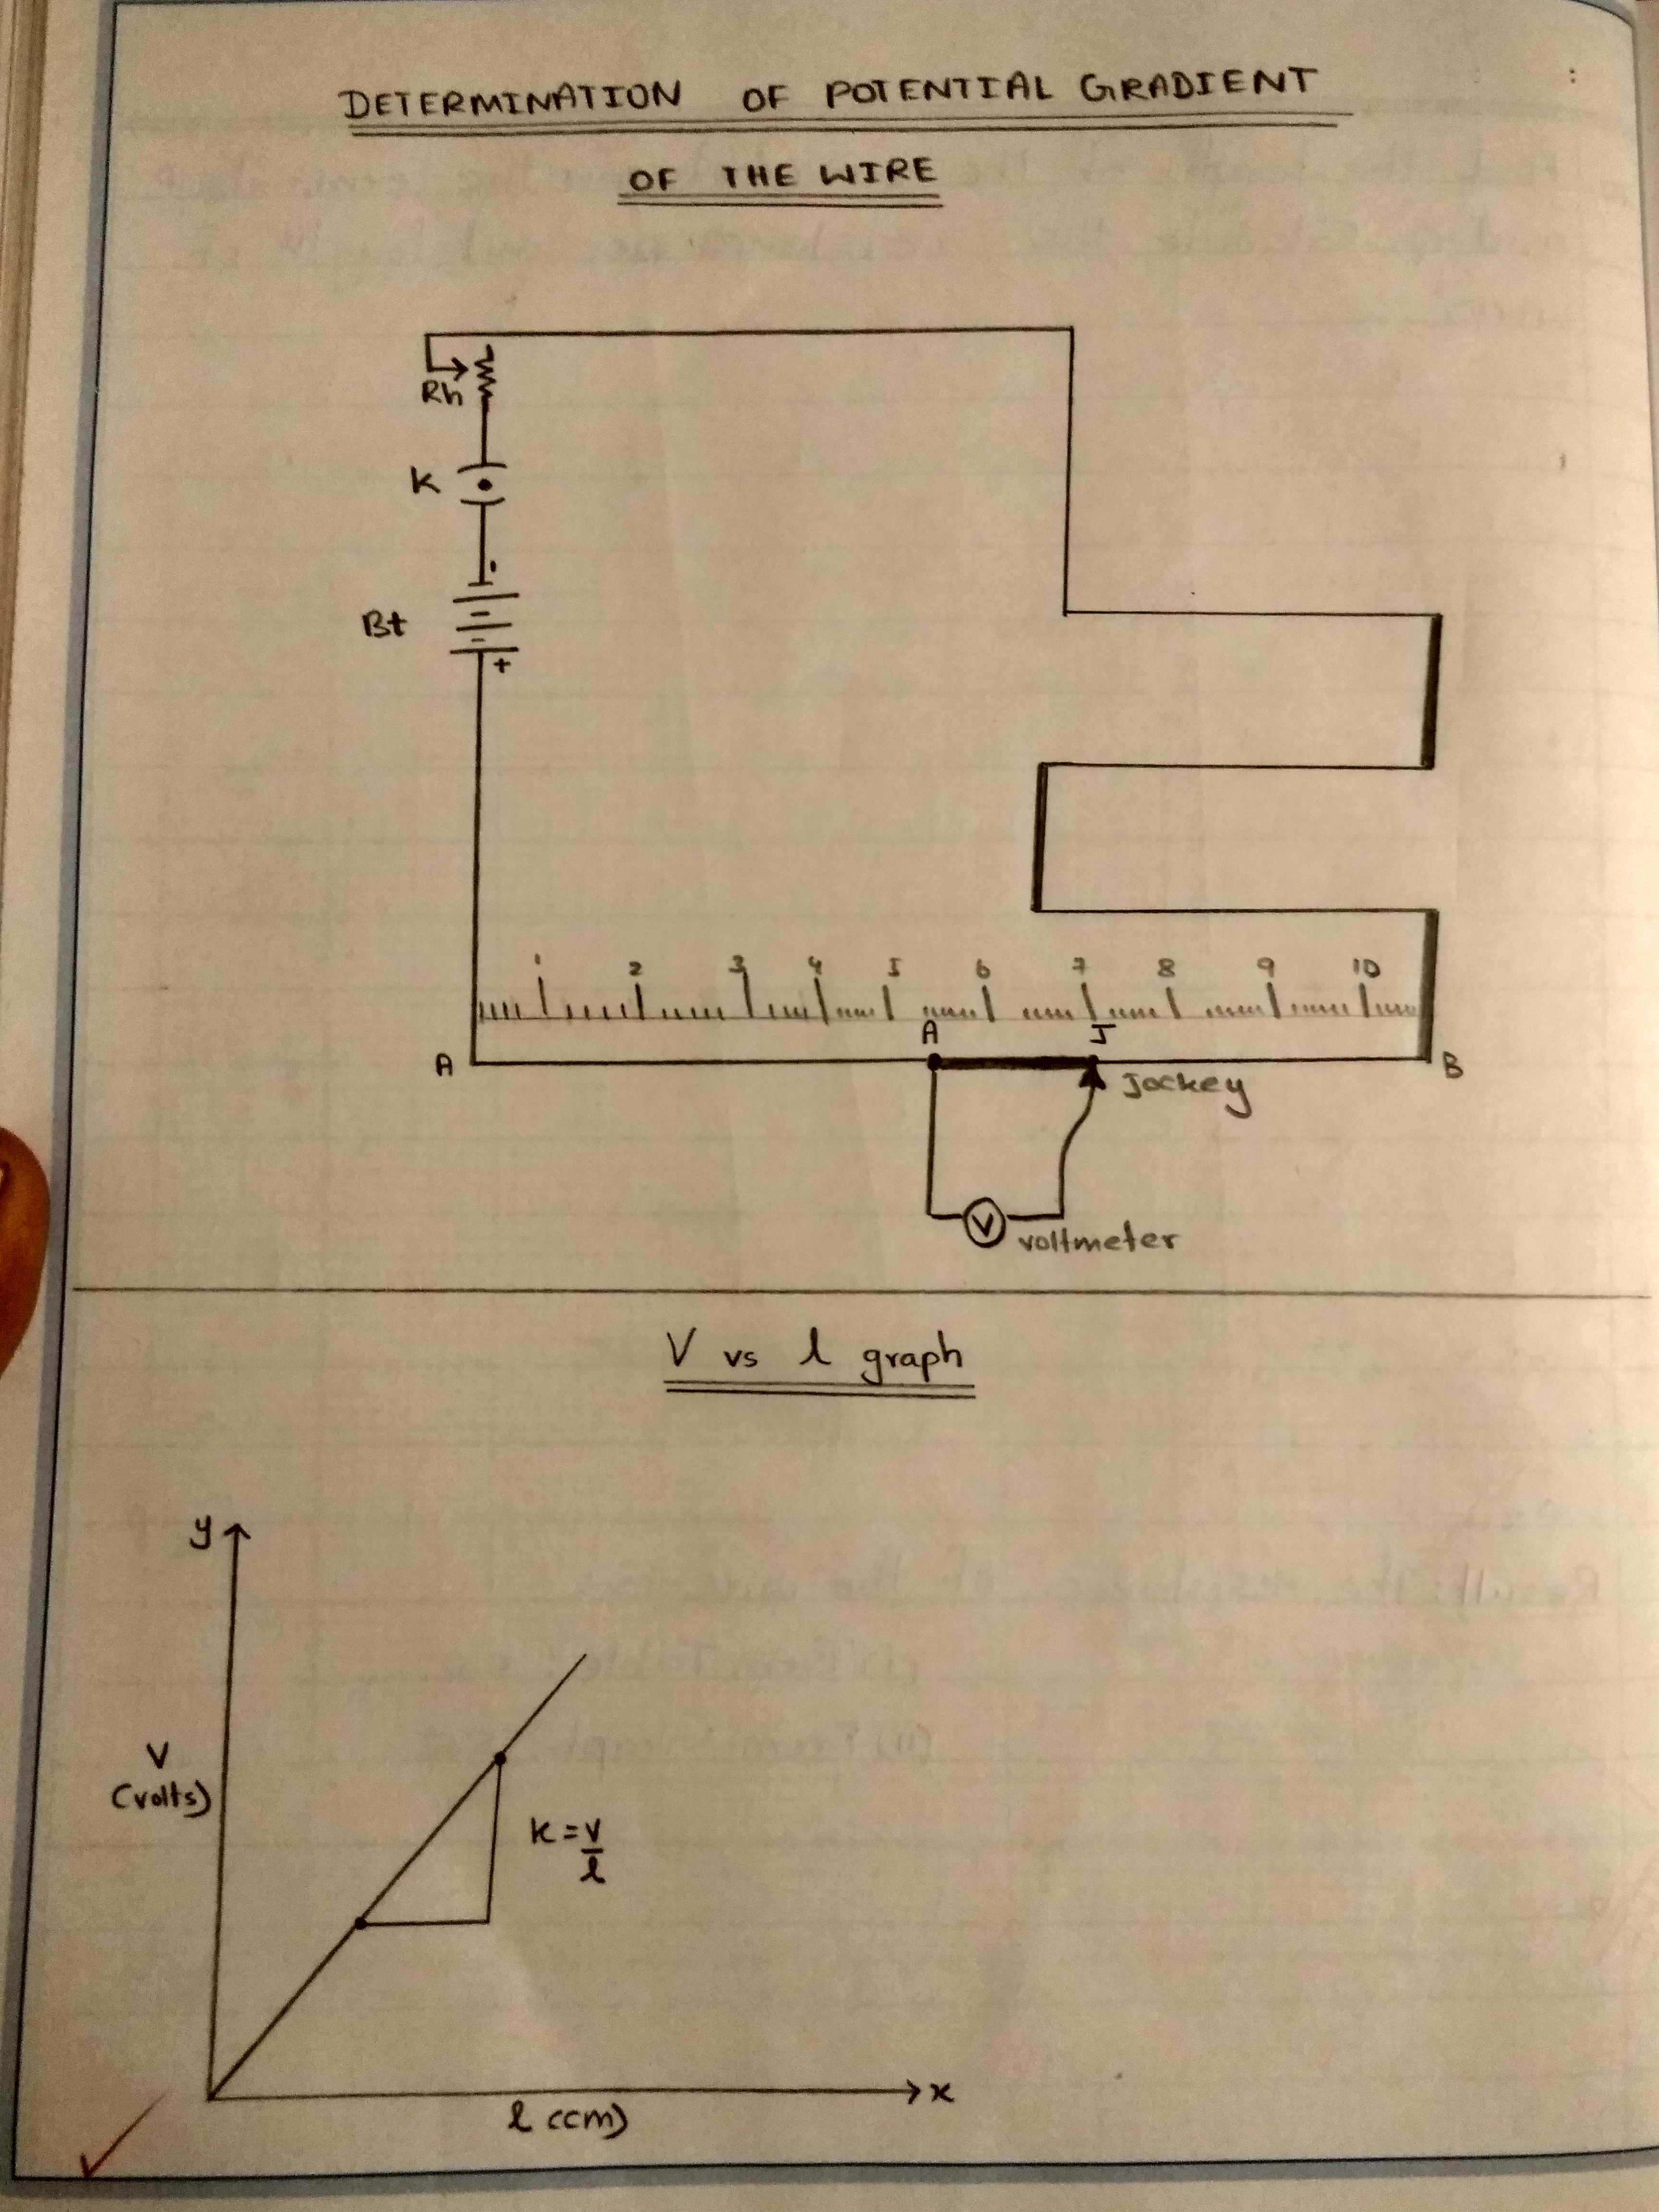 DETERMINATION OF POTENTIAL GRADIENT
OF THE WIRE
Rh
K
-
Bt
+
1 2 3 4 5 6 7 8 9 10
A A J B
Jockey
V voltmeter
V vs l graph
y
V
(volts)
K = V
l
x
l (cm)